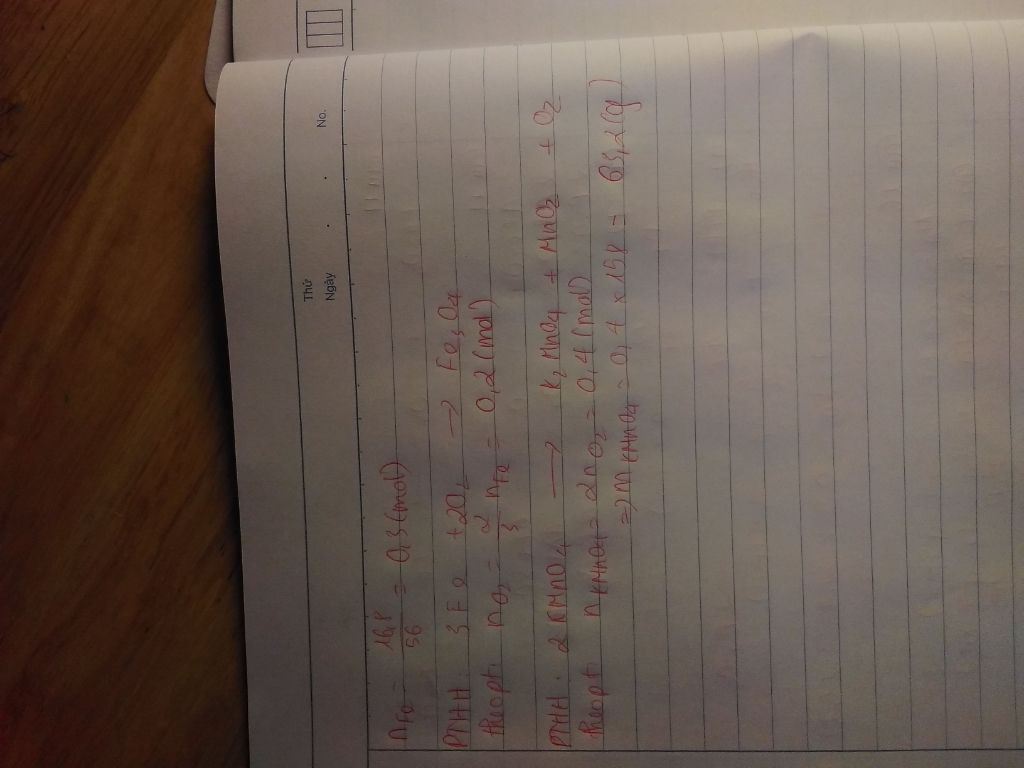 Thứ
Ngày
No.
nFe = 16,8/56 = 0,3 (mol)
PTHH 3Fe + 2O2 → Fe3O4
Theo pt: nO2 = 2/3 nFe = 0,2 (mol)
PTHH: 2KMnO4 → K2MnO4 + MnO2 + O2
Theo pt: nKMnO4 = 2nO2 = 0,4 (mol)
=> mKMnO4 = 0,4 × 158 = 63,2 (g)